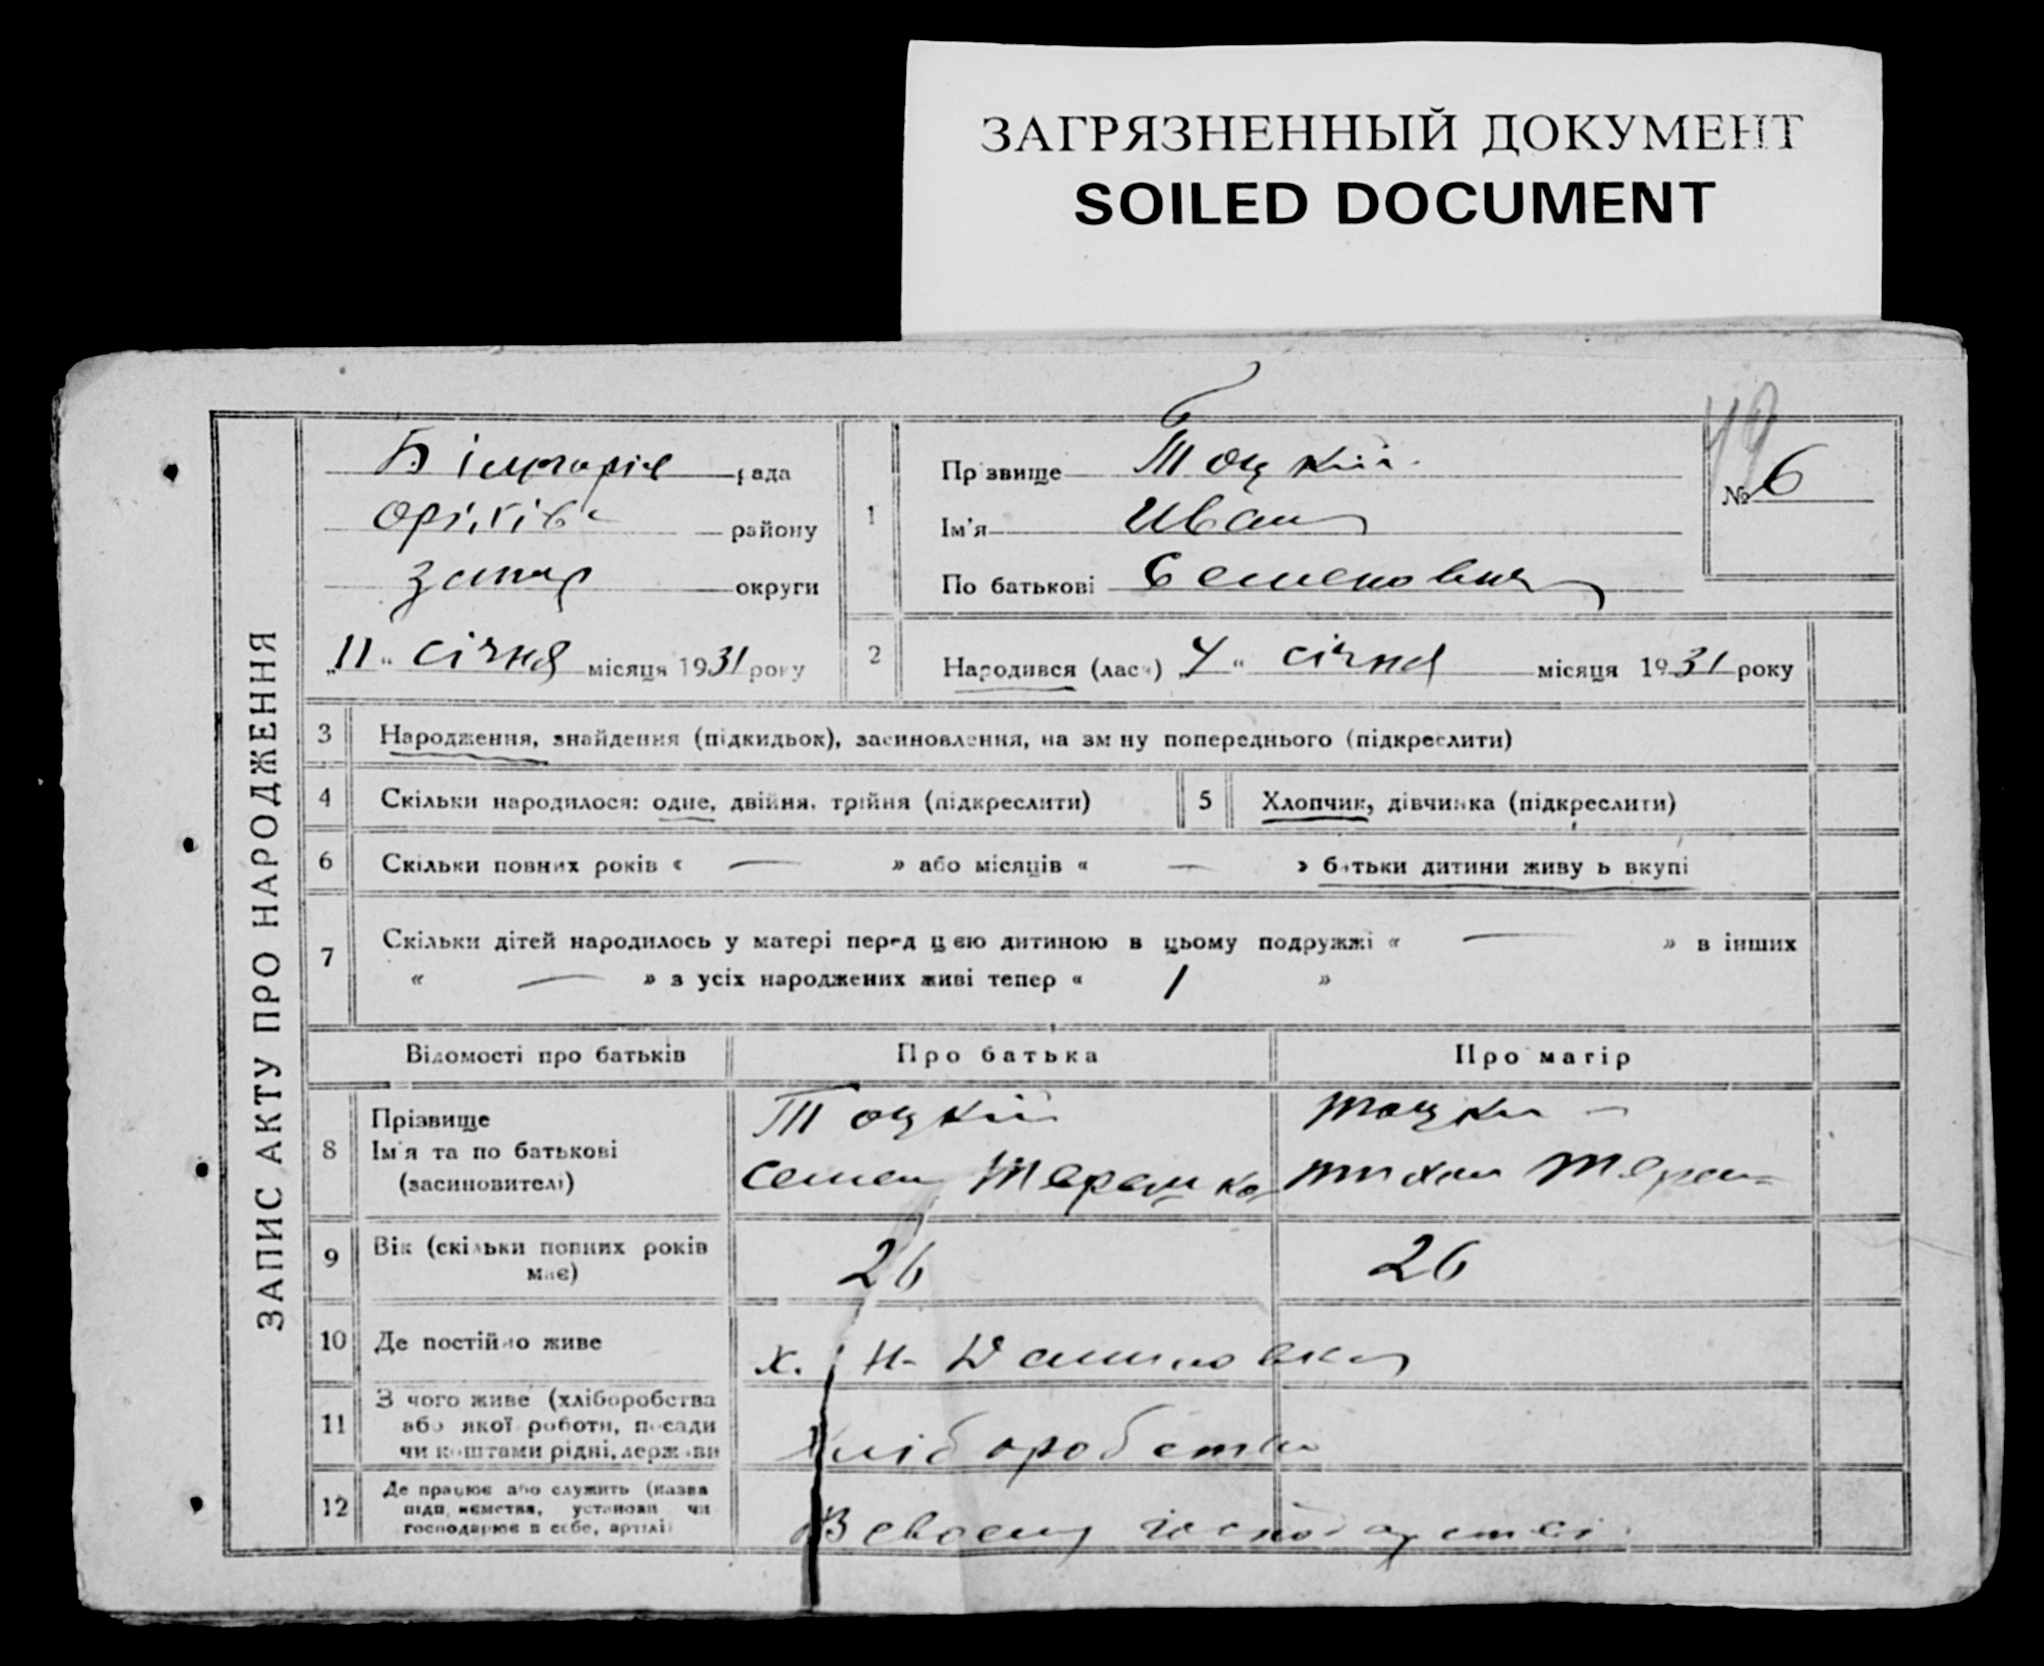 ЗАГРЯЗНЕННЫЙ ДОКУМЕНТ
SOILED DOCUMENT
ЗАПИС АКТУ ПРО НАРОДЖЕННЯ
рада
району
округи
„11“ січня місяця 1931 року
1
Прізвище Тоцкий
Ім'я Иван
По батькові Семенович
49
№ 6
2 Народився (лась) „4“ січня місяця 1931 року
3 Народження, знайдення (підкидьок), засиновлення, на зміну попереднього (підкреслити)
4 Скільки народилося: одне, двійня, трійня (підкреслити)
5 Хлопчик, дівчинка (підкреслити)
6 Скільки повних років « — » або місяців « — » батьки дитини живуть вкупі
7 Скільки дітей народилось у матері перед цією дитиною в цьому подружжі « — » в інших
« — » з усіх народжених живі тепер « 1 »
Відомості про батьків Про батька Про матір
8 Прізвище
Ім'я та по батькові
(засиновителі)
Тоцкий
Семен
9 Вік (скільки повних років
має)
26 26
10 Де постійно живе
х. Н-
11 З чого живе (хліборобства
або якої роботи, посади
чи коштами рідні, держави
Хліборобства
12 Де працює або служить (назва
підприємства, установи чи
господарює в себе, артілі)
В своему господарстві